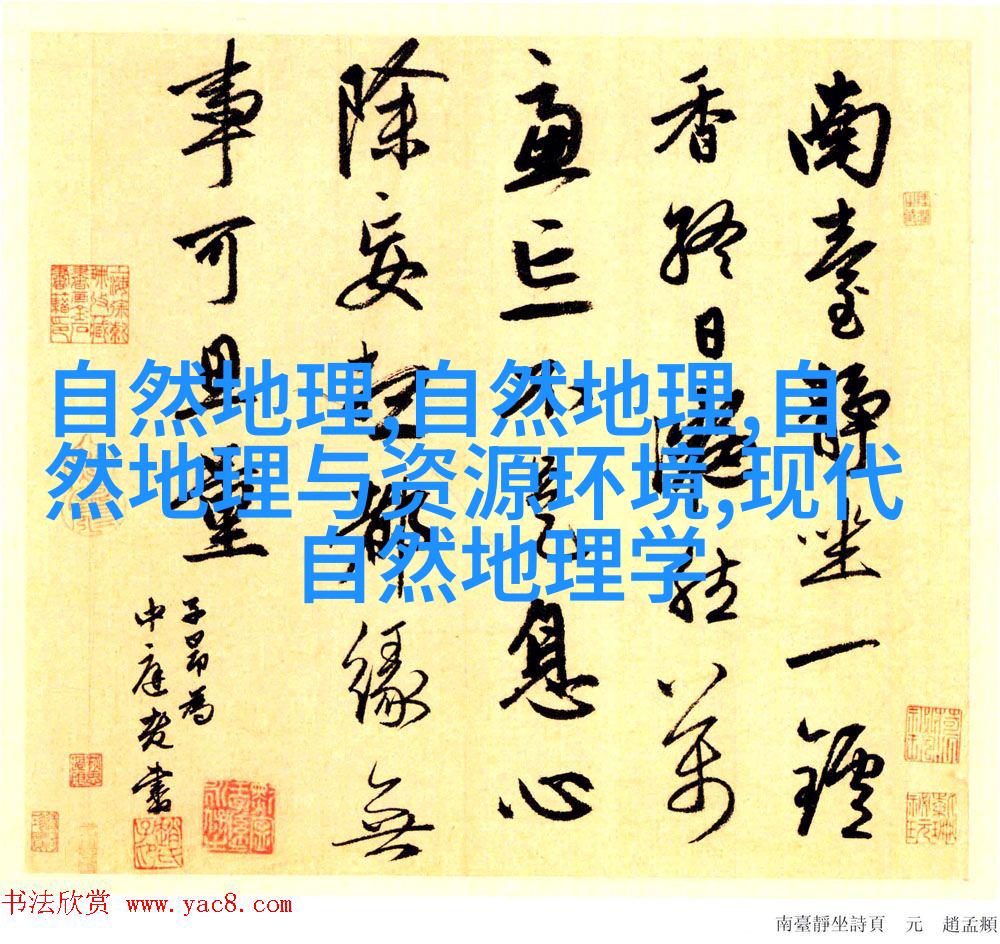 南臺靜坐一鑪
香終日凝然萬
慮亡不是息心
除妄想都緣無
事可思量
子昂為
中庭老書
自然地理,自然地理,自
然地理与资源环境,现代
自然地理学
书法欣赏 www.yac8.com
南臺靜坐詩頁 元 趙孟頫